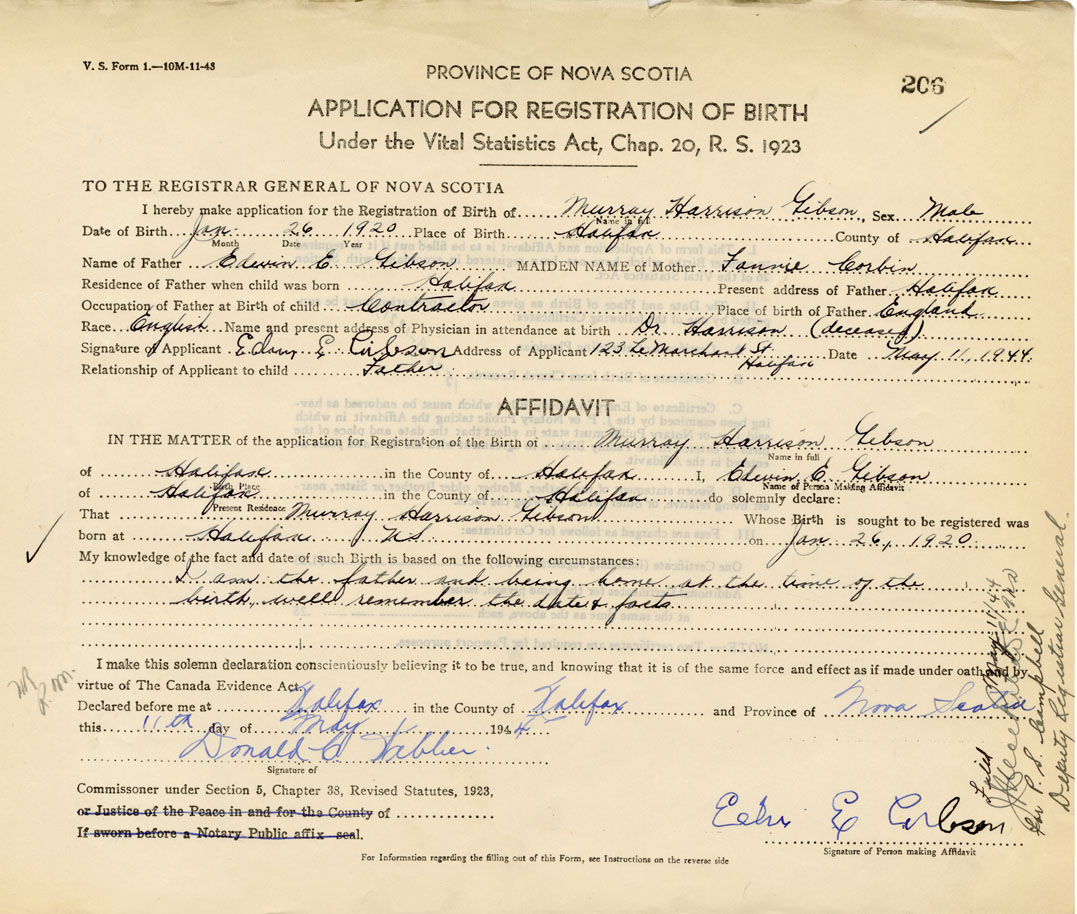 V. S. Form 1.—10M-11-43
PROVINCE OF NOVA SCOTIA
206
APPLICATION FOR REGISTRATION OF BIRTH
Under the Vital Statistics Act, Chap. 20, R. S. 1923
TO THE REGISTRAR GENERAL OF NOVA SCOTIA
I hereby make application for the Registration of Birth of Murray Harrison Gibson, Sex Male
Name in full
Date of Birth Jan. 26 1920 Place of Birth Halifax County of Halifax
Month Date Year
Name of Father Edwin E. Gibson MAIDEN NAME of Mother Fannie Corbin
Residence of Father when child was born Halifax Present address of Father Halifax
Occupation of Father at Birth of child Contractor Place of birth of Father England
Race English Name and present address of Physician in attendance at birth Dr. Harrison (deceased)
Signature of Applicant E Gibson Address of Applicant 123 Le Marchant St. Halifax Date May 11, 1944
Relationship of Applicant to child Father
AFFIDAVIT
IN THE MATTER of the application for Registration of the Birth of Murray Harrison Gibson
Name in full
of Halifax in the County of Halifax I, Edwin E. Gibson
Birth Place Name of Person Making Affidavit
of Halifax in the County of Halifax do solemnly declare:
Present Residence
That Murray Harrison Gibson Whose Birth is sought to be registered was
born at Halifax NS on Jan 26, 1920
My knowledge of the fact and date of such Birth is based on the following circumstances:
I am the father and being home at the time of the
birth, well remember the date & facts
I make this solemn declaration conscientiously believing it to be true, and knowing that it is of the same force and effect as if made under oath and by
virtue of The Canada Evidence Act.
Declared before me at Halifax in the County of Halifax and Province of Nova Scotia
this 11th day of May 1944
Donald C Webber
Signature of
Commissoner under Section 5, Chapter 38, Revised Statutes, 1923,
or Justice of the Peace in and for the County of
If sworn before a Notary Public affix seal.
E Gibson
Signature of Person making Affidavit
For Information regarding the filling out of this Form, see Instructions on the reverse side
Filed May 11/44
for P. S. Campbell
Deputy Registrar General.